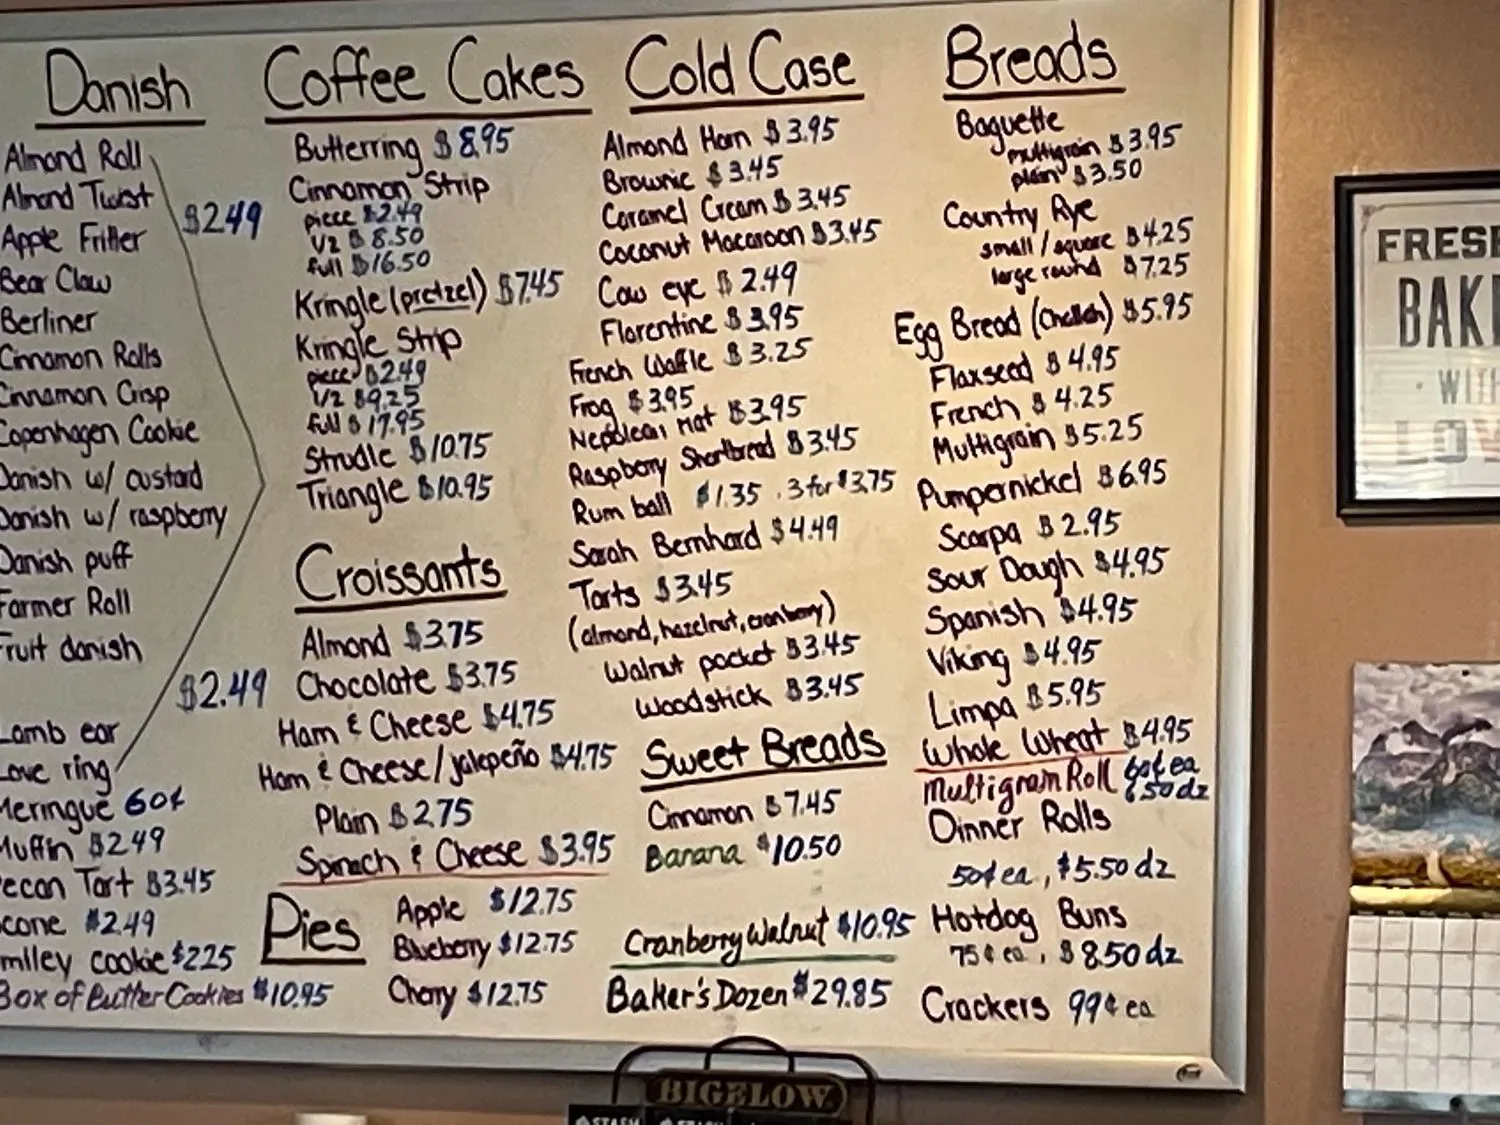 Danish
Almond Roll
Almond Twist
$2.49
Apple Fritter
Bear Claw
Berliner
Cinnamon Rolls
Cinnamon Crisp
Copenhagen Cookie
Danish w/ custard
Danish w/ raspberry
Danish puff
Farmer Roll
Fruit danish
$2.49
Lamb ear
Love ring
Meringue 60¢
Muffin $2.49
Pecan Tart $3.45
Scone $2.49
Smlley cookie $2.25
Box of Butter Cookies $10.95
Coffee Cakes
Butterring $8.95
Cinnamon Strip
piece $2.49
1/2 $8.50
full $16.50
Kringle (pretzel) $7.45
Kringle Strip
piece $2.49
1/2 $9.25
full $17.95
Strudle $10.75
Triangle $10.95
Croissants
Almond $3.75
Chocolate $3.75
Ham & Cheese $4.75
Ham & Cheese/jalepeño $4.75
Plain $2.75
Spinach & Cheese $3.95
Pies
Apple $12.75
Blueberry $12.75
Cherry $12.75
Cold Case
Almond Horn $3.95
Brownie $3.45
Caramel Cream $3.45
Coconut Macaroon $3.45
Cow eye $2.49
Florentine $3.95
French Waffle $3.25
Frog $3.95
Nepolean Hat $3.95
Raspberry Shortbread $3.45
Rum ball $1.35 . 3 for $3.75
Sarah Bernhard $4.49
Tarts $3.45
(almond, hazelnut, cranberry)
Walnut pocket $3.45
Woodstick $3.45
Sweet Breads
Cinnamon $7.45
Banana $10.50
Cranberry Walnut $10.95
Baker's Dozen $29.85
Breads
Baguette
multigrain $3.95
plain $3.50
Country Rye
small/square $4.25
large round $7.25
Egg Bread (Challah) $5.95
Flaxseed $4.95
French $4.25
Multigrain $5.25
Pumpernickel $6.95
Scarpa $2.95
Sour Dough $4.95
Spanish $4.95
Viking $4.95
Limpa $5.95
Whole Wheat $4.95
Multigrain Roll 60¢ ea
6.50 dz
Dinner Rolls
50¢ ea, $5.50 dz
Hotdog Buns
75¢ ea, $8.50 dz
Crackers 99¢ ea
FRES
BAK
WIT
LOV
BIGELOW
STASH